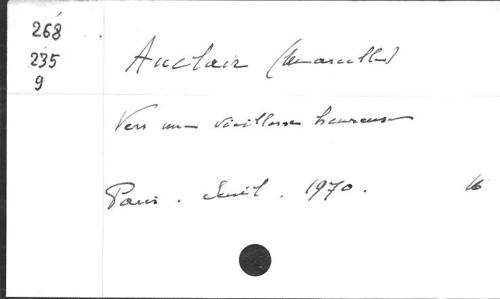 268
235
9
Auclair (Marcelle)
Vers une vieillesse heureuse
Paris. Seuil. 1970. 16